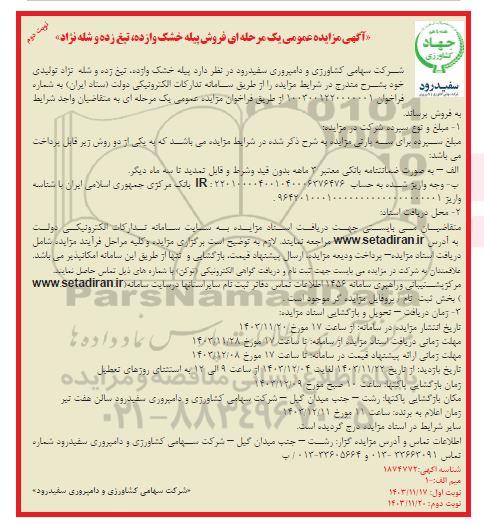 نوبت دوم
«آگهی مزایده عمومی یک مرحله ای فروش پیله خشک وازده، تیغ زده و شله نژاد»
جهاد
کشاورزی
سفیدرود
شرکت سهامی کشاورزی و دامپروری سفیدرود در نظر دارد پیله خشک وازده، تیغ زده و شله نژاد تولیدی
خود بشرح مندرج در شرایط مزایده را از طریق سامانه تدارکات الکترونیکی دولت (ستاد ایران) به شماره
فراخوان ۱۰۰۳۰۰۱۲۲۰۰۰۰۰۰۱ از طریق فراخوان مزایده عمومی یک مرحله ای به متقاضیان واجد شرایط
به فروش برساند.
۱- مبلغ و نوع سپرده شرکت در مزایده:
مبلغ سپرده برای سه پارتی مزایده به شرح ذکر شده در شرایط مزایده می باشد که به یکی از دو روش زیر قابل پرداخت
می باشد:
الف – به صورت ضمانتنامه بانکی معتبر ۳ ماهه بدون قید وشرط و قابل تمدید تا سه ماه دیگر.
ب- وجه واریز شده به حساب IR : ۲۲۰۱۰۰۰۰۴۰۰۱۰۴۰۰۰۶۳۷۶۴۷۶ بانک مرکزی جمهوری اسلامی ایران با شناسه
واریز
۲- محل دریافت اسناد:
متقاضیان می بایستی جهت دریافت اسناد مزایده به سایت سامانه تدارکات الکترونیکی دولت
به آدرس www.setadiran.ir مراجعه نمایند. لازم به توضیح است برگزاری مزایده وکلیه مراحل فرآیند مزایده شامل
دریافت اسناد مزایده– پرداخت ودیعه مزایده، ارسال پیشنهاد قیمت، بازگشایی و تنها از طریق این سامانه امکانپذیر می باشد.
علاقمندان به شرکت در مزایده می بایست جهت ثبت نام و دریافت گواهی الکترونیکی (توکن) با شماره های ذیل تماس حاصل نمایند.
مرکزپشتیبانی وراهبری سامانه ۱۴۵۶ اطلاعات تماس دفاتر ثبت نام سایراستانها درسایت سامانه(www.setadiran.ir
) بخش ثبت نام / پروفایل مزایده گر موجود است.
۳- زمان دریافت – تحویل و بازگشایی اسناد مزایده:
تاریخ انتشار مزایده در سامانه: از ساعت ۱۷ مورخ ۱۴۰۳/۱۱/۲۰
مهلت زمانی دریافت اسناد مزایده از سامانه: تا ساعت ۱۷ مورخ ۱۴۰۳/۱۱/۲۸
مهلت زمانی ارائه پیشنهاد قیمت در سامانه: تا ساعت ۱۷ مورخ ۱۴۰۳/۱۲/۰۸
تاریخ بازدید: از تاریخ ۱۴۰۳/۱۱/۲۲ لغایت ۱۴۰۳/۱۲/۰۴ از ساعت ۹ الی ۱۲ به استثنای روزهای تعطیل
زمان بازگشایی پاکتها: ساعت ۱۰ صبح مورخ ۱۴۰۳/۱۲/۰۹
مکان بازگشایی پاکتها: رشت – جنب میدان گیل – شرکت سهامی کشاورزی و دامپروری سفیدرود سالن هفت تیر
زمان اعلام به برنده: ساعت ۱۱ مورخ ۱۴۰۳/۱۲/۱۱
سایر شرایط در اسناد مزایده درج گردیده است.
اطلاعات تماس و آدرس مزایده گزار: رشت – جنب میدان گیل – شرکت سهامی کشاورزی و دامپروری سفیدرود شماره
تماس ۳۳۶۶۳۰۹۱-۰۱۳ و ۳۳۶۰۵۶۶۴-۰۱۳ / پ
شناسه آگهی: ۱۸۷۴۷۷۲
میم الف: ۱-
نوبت اول: ۱۴۰۳/۱۱/۱۷
نوبت دوم: ۱۴۰۳/۱۱/۲۰
«شرکت سهامی کشاورزی و دامپروری سفیدرود»
ParsNamadData
۰۲۱-۸۸۳۴۹۶۷۰